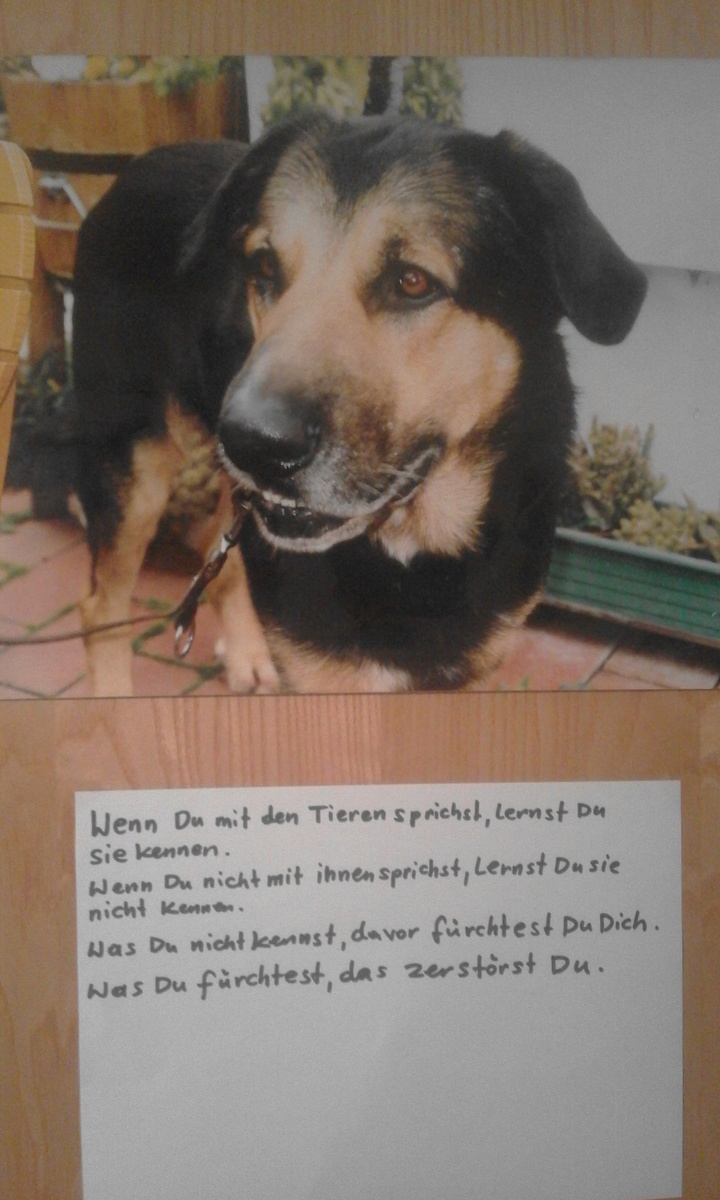 Wenn Du mit den Tieren sprichst, lernst Du
sie kennen.
Wenn Du nicht mit ihnen sprichst, Lernst Du sie
nicht kennen.
Was Du nicht kennst, davor fürchtest Du Dich.
Was Du fürchtest, das zerstörst Du.